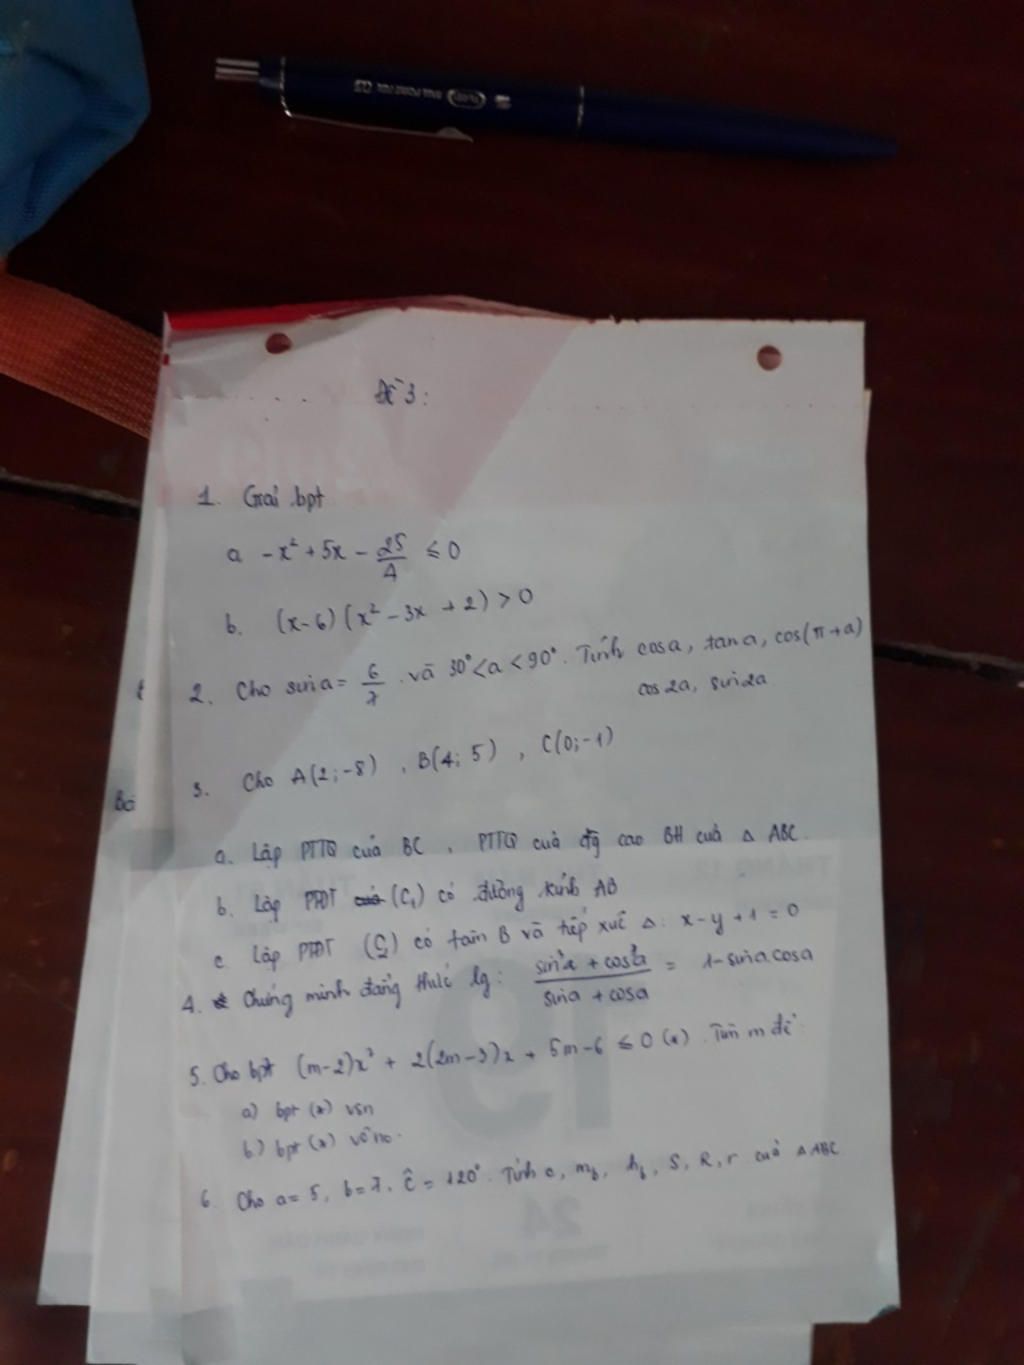 Đề 3:
1. Giải bpt
a -x² + 5x - 25/4 ≤ 0
b. (x-6)(x² - 3x + 2) > 0
2. Cho sina = 6/7 và 30° < a < 90°. Tính cosa, tana, cos(π+a)
cos2a, sin2a
3. Cho A(2;-8), B(4;5), C(0;-1)
a. Lập PTTQ của BC, PTTQ của đg cao BH của Δ ABC.
b. Lập PTĐT (C₁) có đường kính AB
c. Lập PTĐT (C₂) có tâm B và tiếp xúc Δ: x-y+1=0
4. Chứng minh đẳng thức lg: (sin³a + cos³a)/(sina + cosa) = 1-sinacosa
5. Cho bpt (m-2)x² + 2(2m-3)x + 5m-6 ≤ 0 (*). Tìm m để:
a) bpt (*) vsn
b) bpt (*) vô no.
6. Cho a=5, b=7, Ĉ=120°. Tính c, m_b, h_b, S, R, r của Δ ABC
BALL POINT PEN 03
19
24